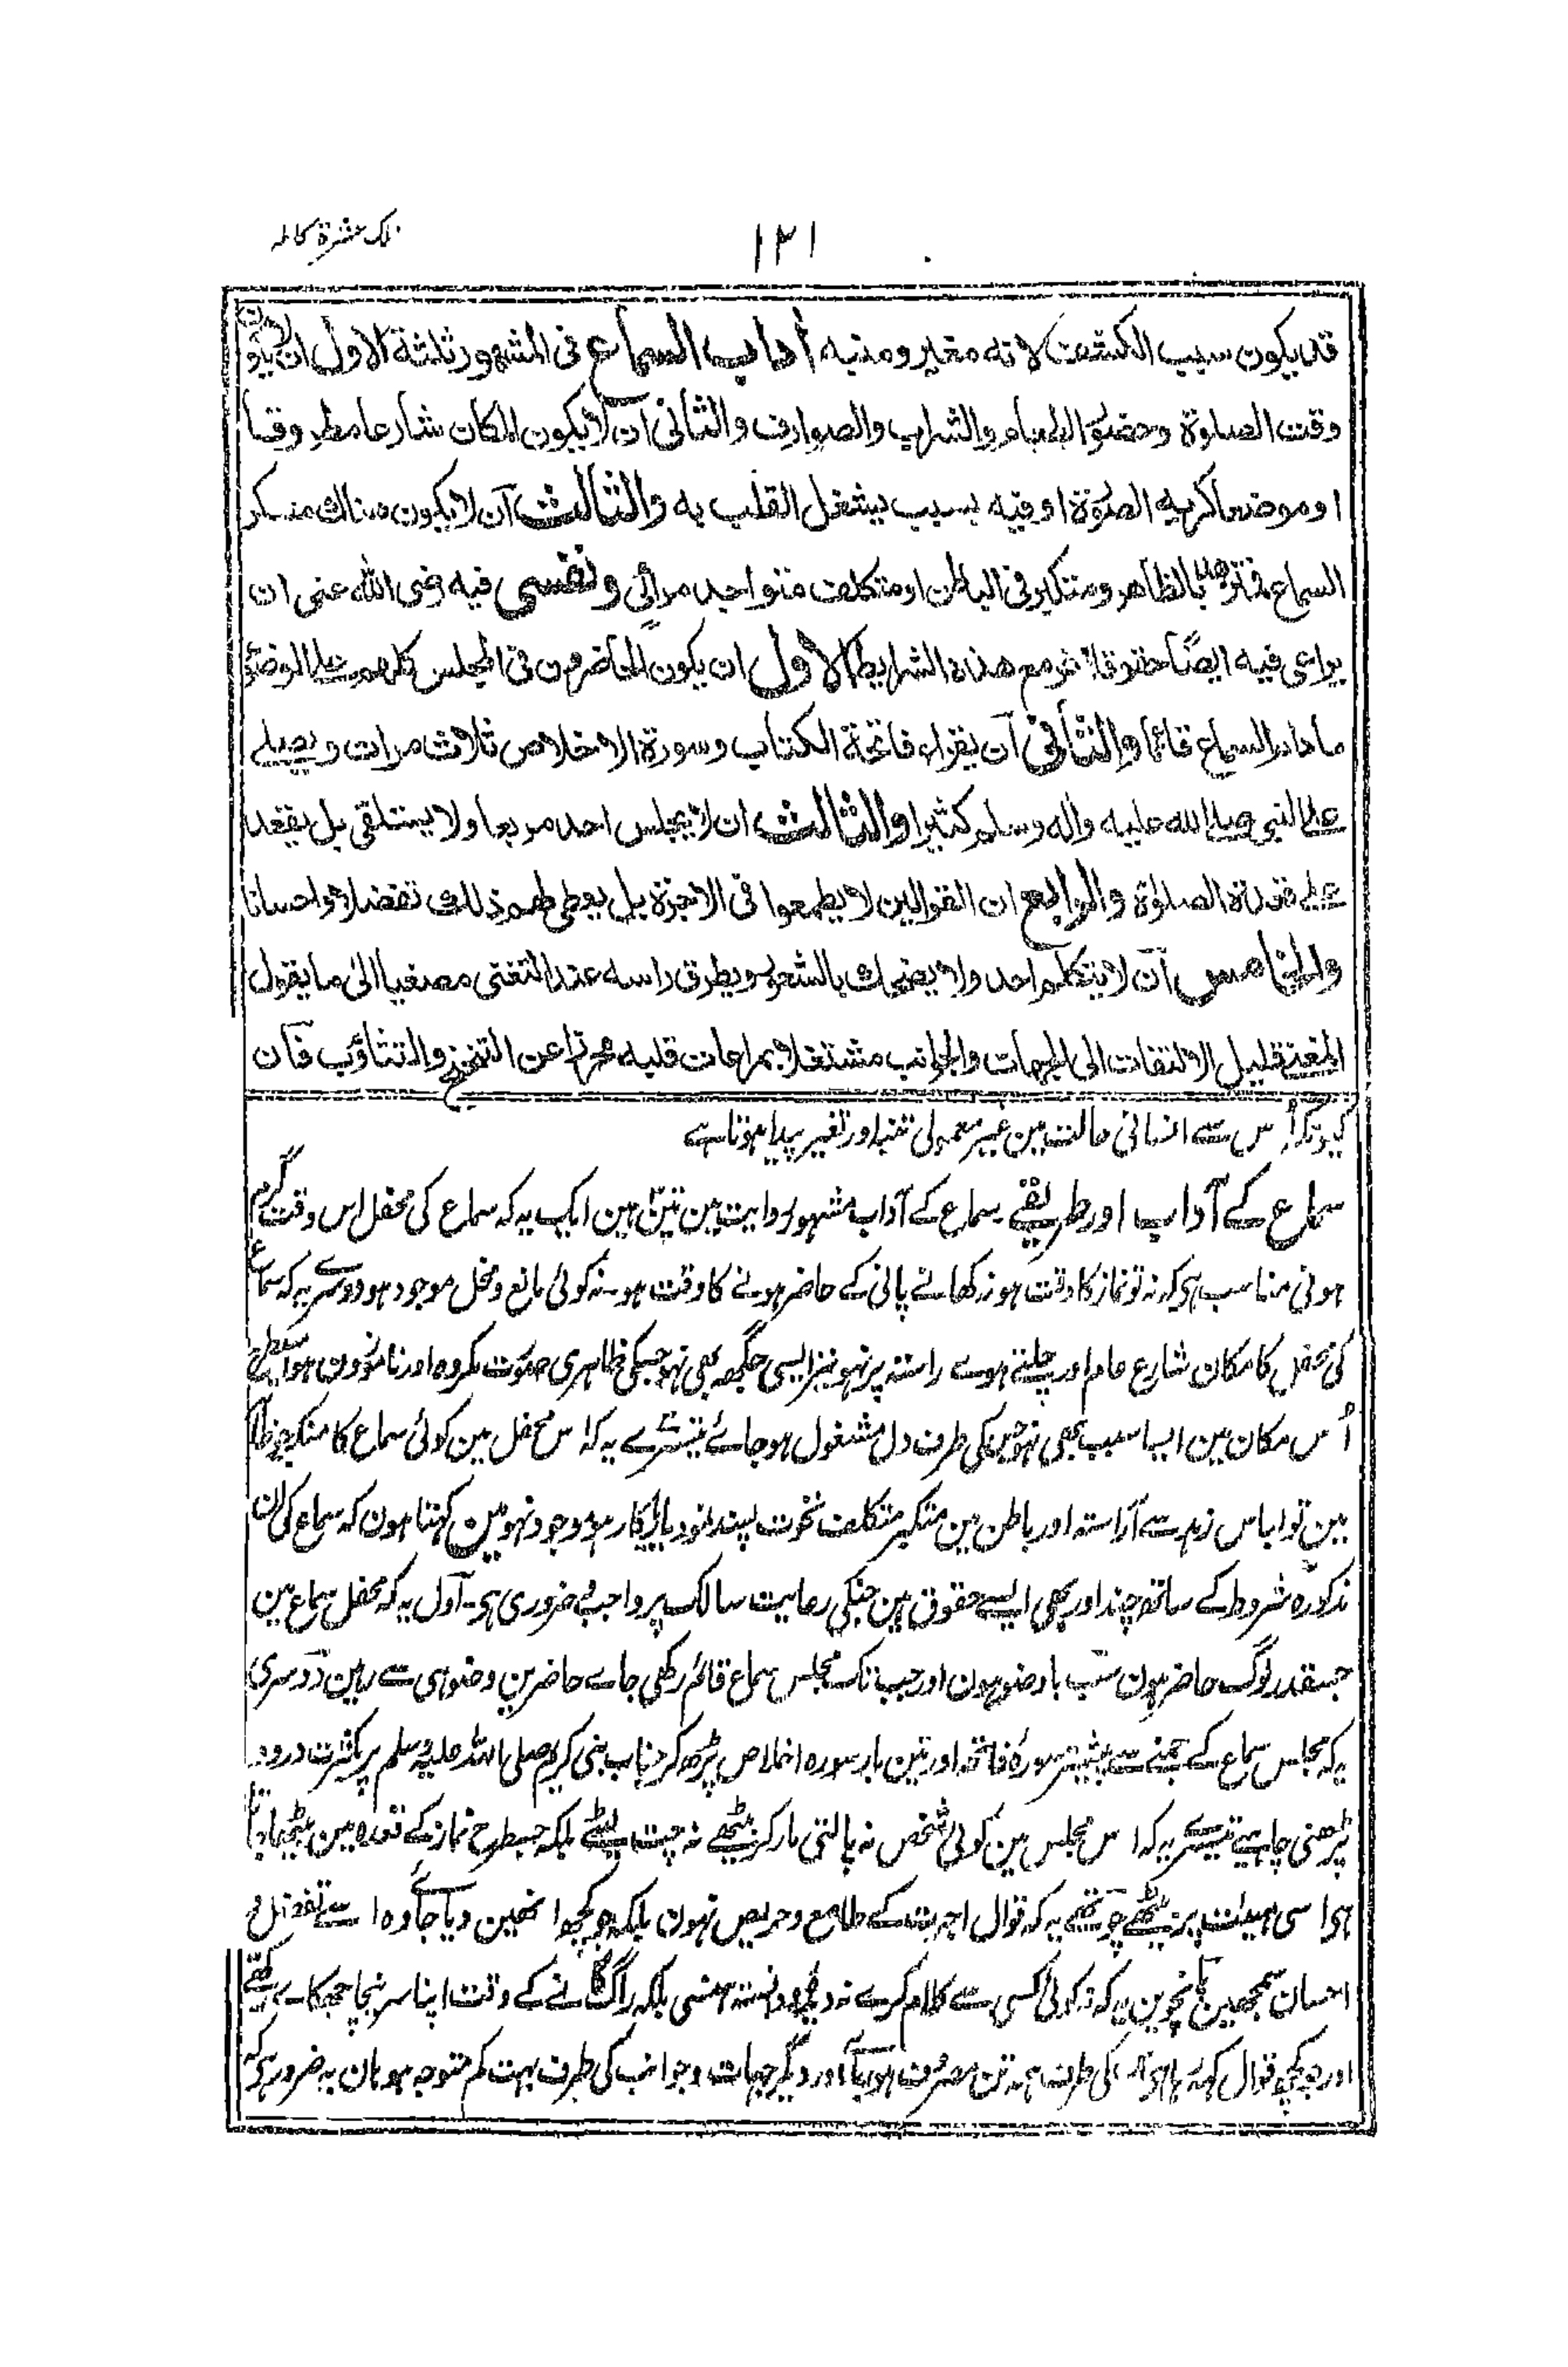 تلک عشرة کاملہ
۱۲۱
قد یکون سبب الکشف لانه مغیر ومنبه أداب السماع فی المشهور ثلثة الاول ان
وقت الصلوة وحضور الطعام والشراب والصوارف والثانی آن لایکون المکان شارعا مطروقا
او موضعا کریه الصورة او فیه سبب یشغل القلب به والثالث آن لا یکون هناک منکر
السماع متزهد بالظاهر ومتکبر فی الباطن او متکلف متواجد مرائی ونفسی فیه رضی الله عنی ان
یراعی فیه ایضًا حقوقا اخر مع هذه الشرایط الاول ان یکون الحاضرون فی المجلس کلهم علی الوضوء
مادام السماع قائما والثانی آن یقراء فاتحة الکتاب وسورة الاخلاص ثلاث مرات ویصلی
علی النبی صلی الله علیه واله وسلم کثیرا والثالث ان لایجلس احد مربعا ولا یستلقی بل یقعد
علی قعدة الصلوة والرابع ان القوالین لا یطمعوا فی الاجرة بل یعطی لهم ذلک تفضلا واحسانا
والخامس آن لا یتکلم احد ولا یضحک بالشعر ویطرق راسه عند التغنی مصغیا الی ما یقول
المغنی قلیل الالتفات الی الجهات والجوانب مشتغلا بمراعات قلبه محرزا عن التنحنح والتثاؤب فآن
کیونکہ اُس سے انسانی حالت مین غیر معمولی تنبہ اور تغیر پیدا ہوتا ہے
سماع کے آداب اور طریقے سماع کے آداب مشہور روایت مین تین ہین ایک یہ کہ سماع کی محفل اس وقت گرم
ہونی مناسب ہی کہ نہ تو نماز کا وقت ہو نہ کھانے پانی کے حاضر ہونے کا وقت ہو نہ کوئی مانع و مخل موجود ہو دوسرے یہ کہ سماع
کی محفل کا مکان شارع عام اور چلتے ہوے راستہ پر نہو نیز ایسی جگہ بھی نہو جسکی ظاہری صورت مکروہ اور ناموزون ہو اسیطرح
اُس مکان مین ایسا سبب بھی نہو جسکی طرف دل مشغول ہو جائے تیسرے یہ کہ اس محفل مین کوئی سماع کا منکر جو ظاہر
مین تو لباس زہد سے آراستہ اور باطن مین متکبر متکلف نخوت پسند اور ریاکار ہو موجود نہو مین کہتا ہون کہ سماع کی ان
مذکورہ شروط کے ساتھ چند اور بھی ایسے حقوق ہین جنکی رعایت سالک پر واجب ضروری ہی۔ آول یہ کہ محفل سماع مین
جسقدر لوگ حاضر ہون سب با وضو ہون اور جب تک مجلس سماع قائم رکھی جاے حاضرین وضو ہی سے رہین دوسری
یہ کہ مجلس سماع کے جمنے سے پیشتر سورۂ فاتحہ اور تین بار سورہ اخلاص پڑھ کر جناب نبی کریم صلی اللہ علیہ وسلم پر بکثرت درود
پڑھنی چاہیے تیسرے یہ کہ اس مجلس مین کوئی شخص نہ پالتی مار کر بیٹھے نہ چت لیٹے بلکہ جسطرح نماز کے قعدہ مین بیٹھا جاتا
ہی اسی ہیئت پر بیٹھے چوتھے یہ کہ قوال اجرت کے طامع و حریص نہون بلکہ جو کچھ انھین دیا جائے وہ اسے تفضل و
احسان سمجھین پانچوین یہ کہ نہ کوئی کسی سے کلام کرے نہ دیدہ و دانستہ ہنسے بلکہ راگ گانے کے وقت اپنا سر نیچا جھکاے رکھے
اور جو کچھ قوال کہہ رہا ہو کی طرف ہمہ تن مصروف ہو جائے اور دیگر جہات و جوانب کی طرف بہت کم متوجہ ہو ہان یہ ضرور ہی کہ